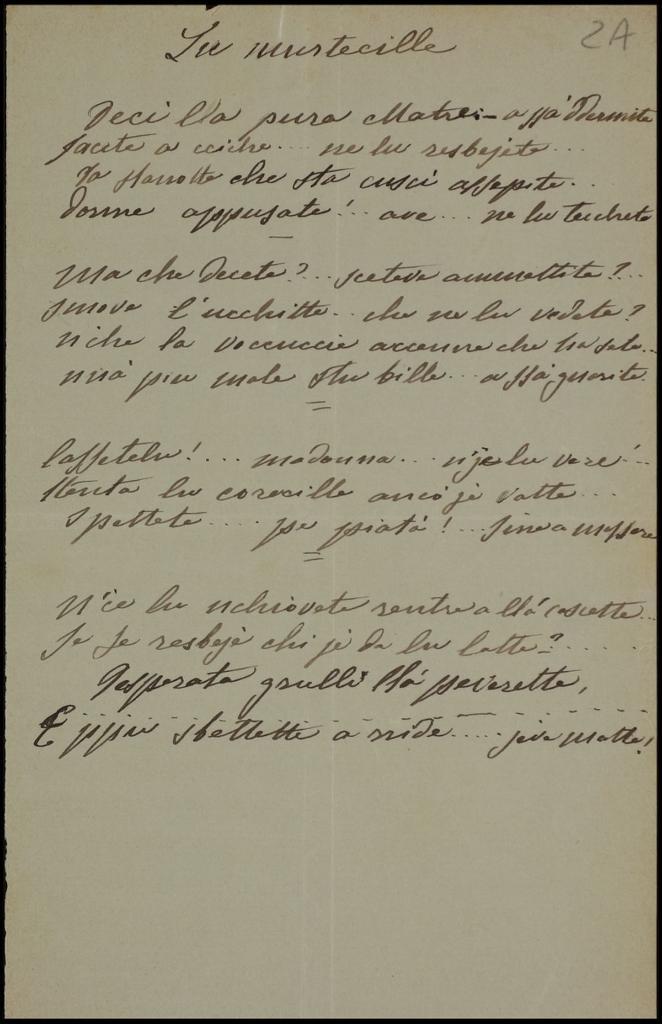 Lu murtecille
2A
Deci lla pura Matre - a ssá Ddurmite
facete a cciche... ne lu resbejete...
Da stanotte che sta cuscí assepite...
Dorme appusate!.. ave... ne lu tucchete
Ma che decete?... sceteve ammattite?...
smove l'ucchitte... che ne lu vedete?
nche la voccuccie accenne che ha sete...
mo' piu male stu bille... a ssá guarite.
lassetelu!... madonna... n'je lu vere!...
stenta lu corecille ancó je vatte...
Spettete.... pe piatá!... sine a
N'ce lu nchiovete rentre a llá cascette...
Se se resbeje chi je da lu latte?.....
Desperate grulli llá peverette,
E ppiu sbettette a rride.... jeva matte!